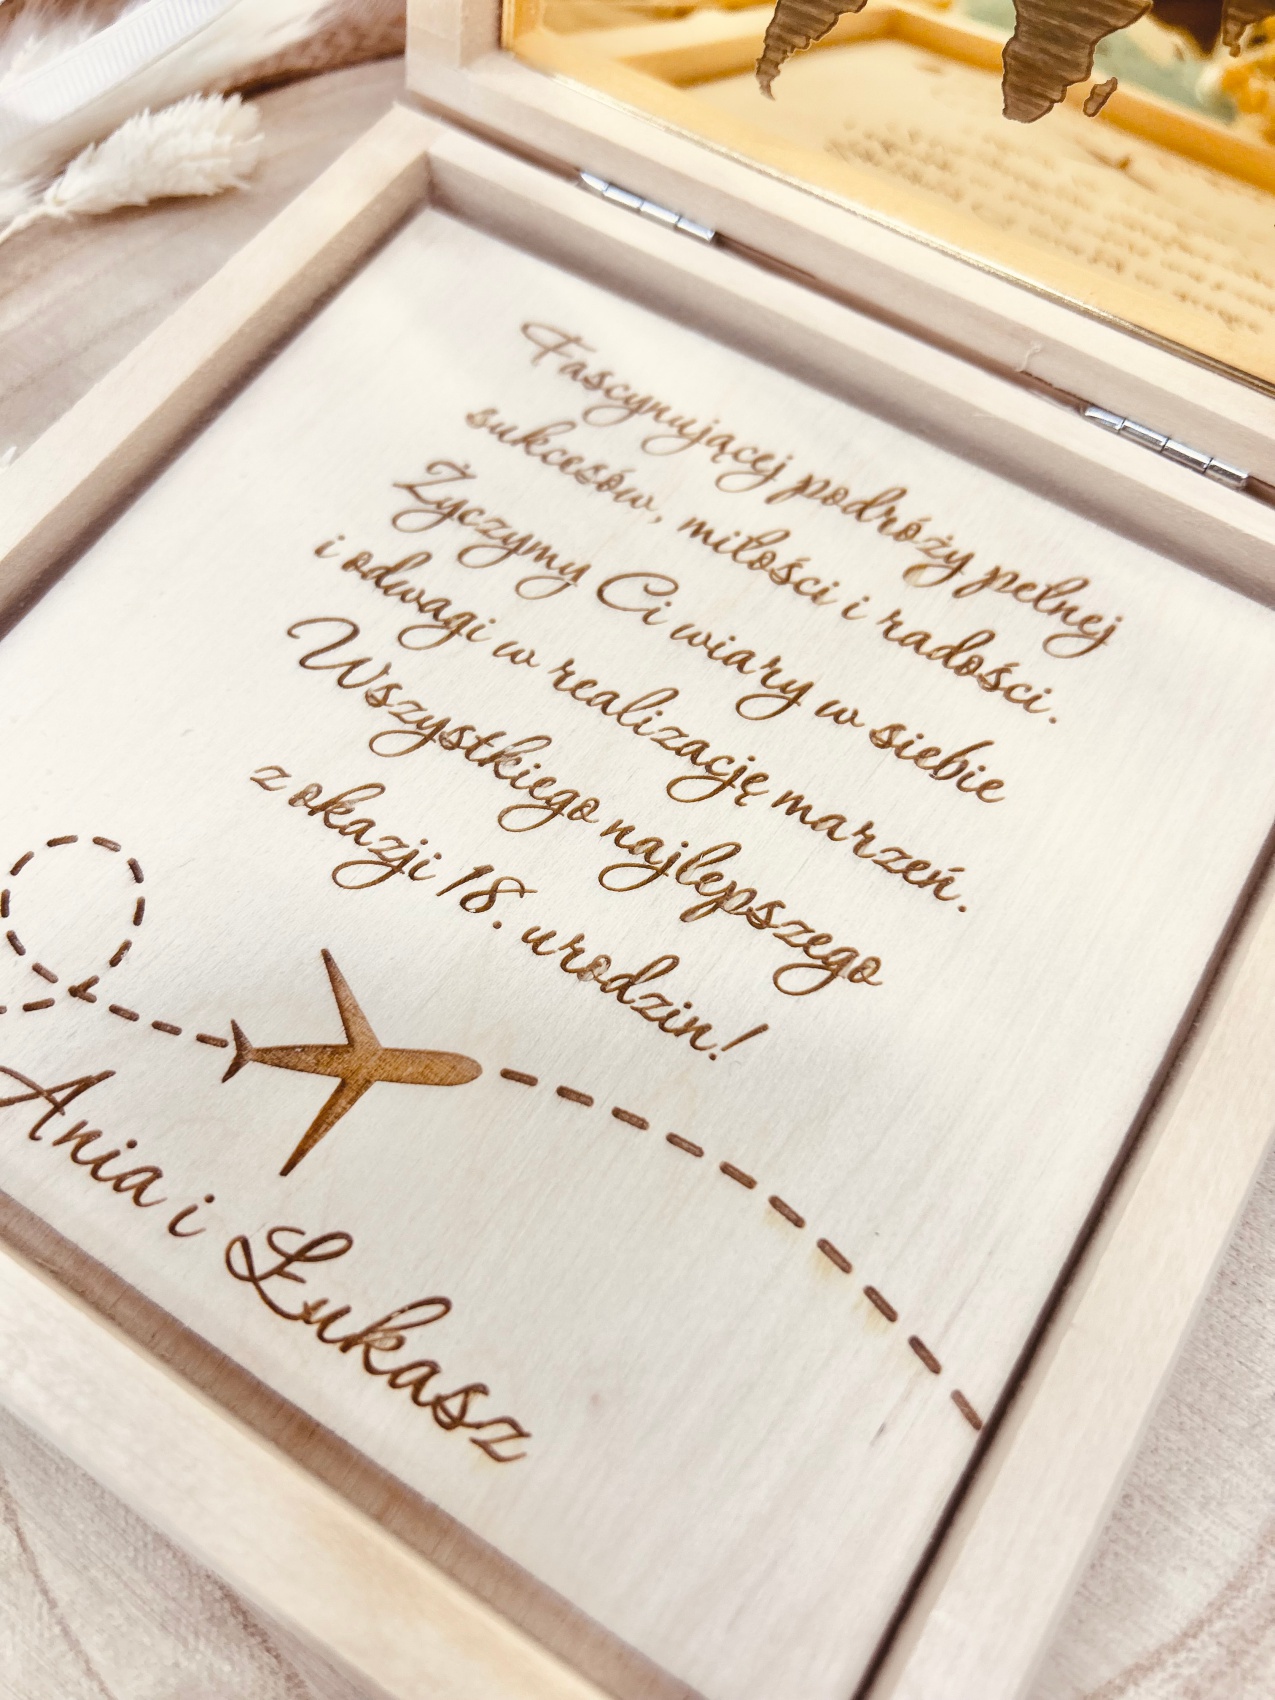 Fascynującej podróży pełnej
sukcesów, miłości i radości.
Życzymy Ci wiary w siebie
i odwagi w realizację marzeń.
Wszystkiego najlepszego
z okazji 18. urodzin!
Ania i Łukasz